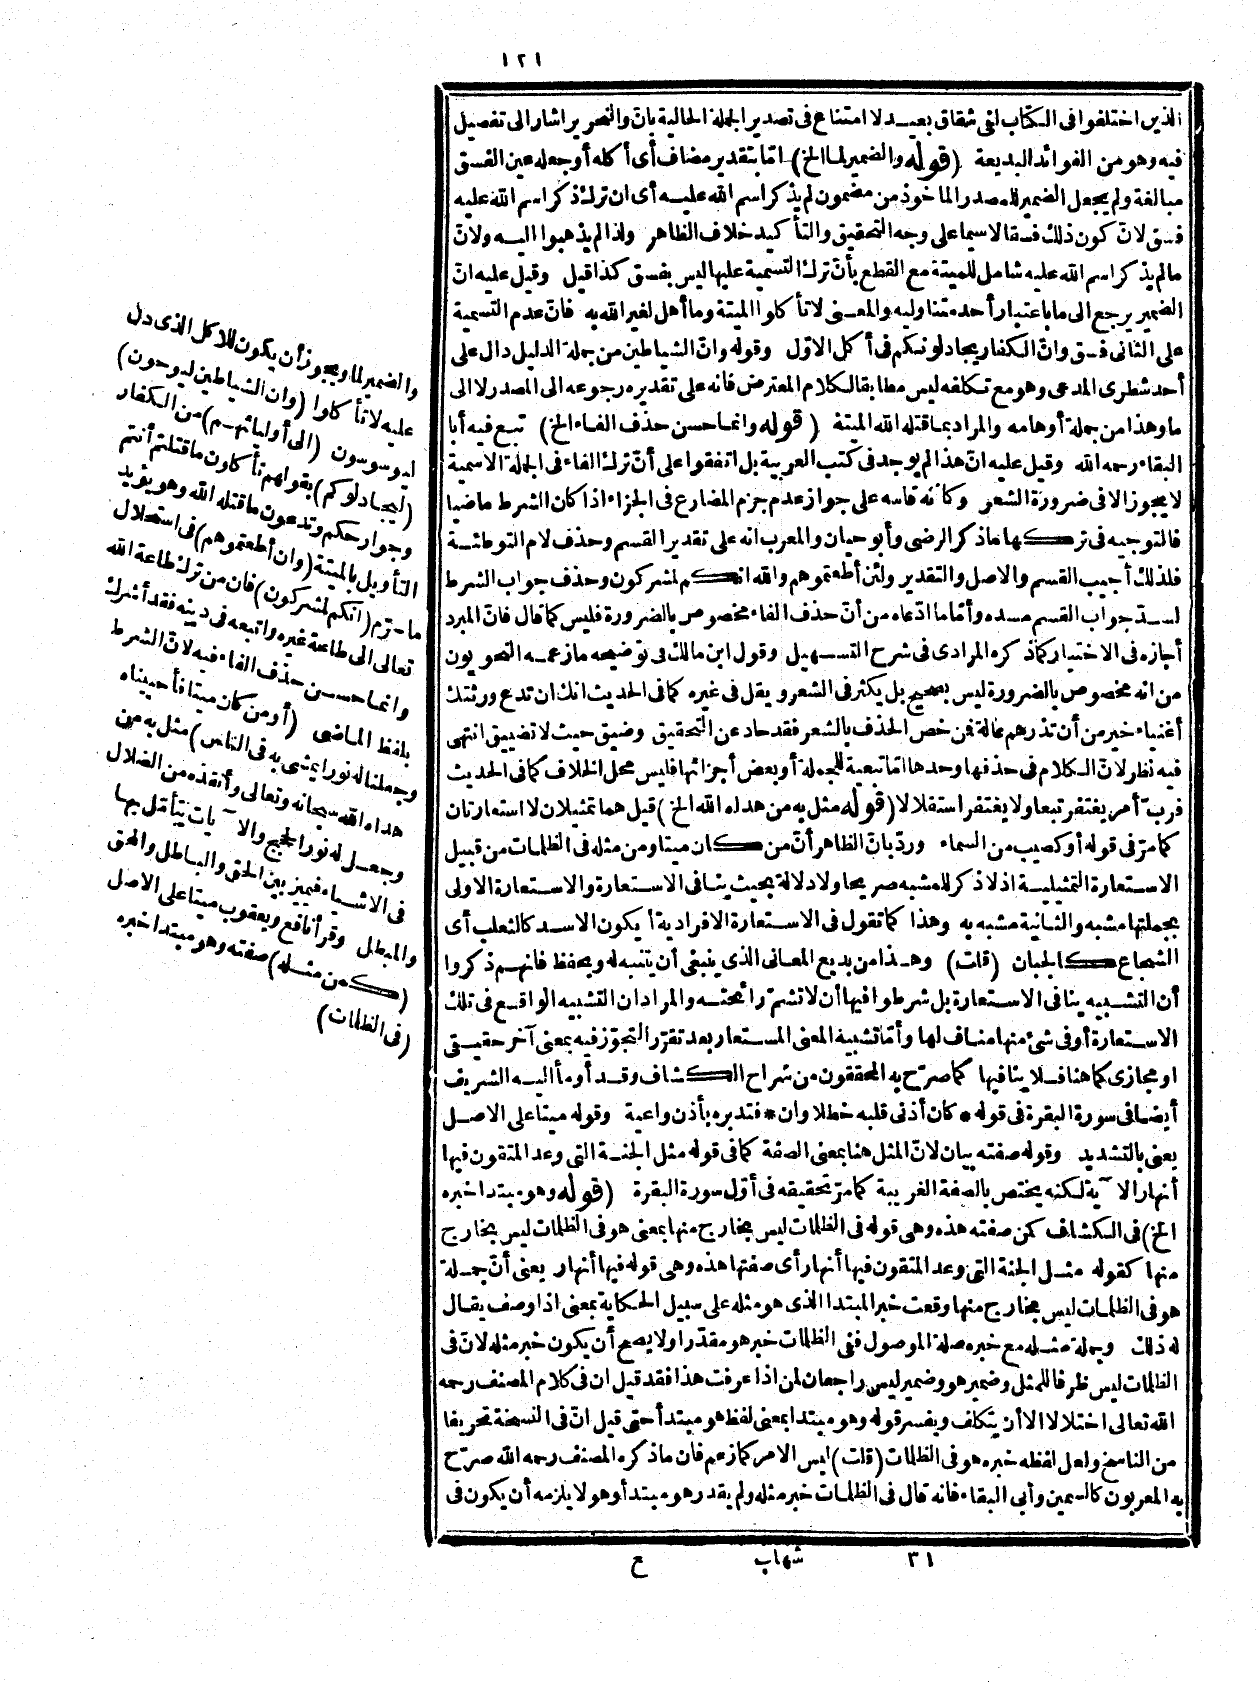 ١٢١
الذين اختلفوا فى الكتاب لفى شقاق بعيد لا امتناع فى تصدير الجملة الحالية بانّ والنحرير اشار الى تفصيل
فيه وهو من الفوائد البديعة (قوله والضمير لما الخ) امّا بتقدير مضاف أى أكله أو جعله عين الفسق
مبالغة ولم يجعل الضمير للمصدر المأخوذ من مضمون لم يذكر اسم الله عليه أى ان ترك ذكر اسم الله عليه
فسق لانّ كون ذلك فسقا لا سيما على وجه التحقيق والتأكيد خلاف الظاهر ولذا لم يذهبوا اليه ولانّ
ما لم يذكر اسم الله عليه شامل للميتة مع القطع بأنّ ترك التسمية عليها ليس بفسق كذا قيل وقيل عليه انّ
الضمير يرجع الى ما باعتبار أحد متناوليه والمعنى لا تأكلوا الميتة وما أهل لغير الله به فانّ عدم التسمية
على الثانى فسق وانّ الكفار يجادلونكم فى أكل الاوّل وقوله وانّ الشياطين من جملة الدليل دال على
أحد شطرى المدعى وهو مع تكلفه ليس مطابقا لكلام المعترض فانه على تقديره رجوعه الى المصدر لا الى
ما وهذا من جملة أوهامه والمراد بما قتله الله الميتة (قوله وانما حسن حذف الفاء الخ) تبع فيه أبا
البقاء رحمه الله وقيل عليه انّ هذا لم يوجد فى كتب العربية بل اتفقوا على أنّ ترك الفاء فى الجملة الاسمية
لا يجوز الا فى ضرورة الشعر وكأنه قاسه على جواز عدم جزم المضارع فى الجزاء اذا كان الشرط ماضيا
فالتوجيه فى تركها ما ذكر الرضى وأبو حيان والمعرب انه على تقدير القسم وحذف لام التوطئة
فلذلك أجيب القسم والاصل والتقدير ولئن أطعتموهم والله انكم لمشركون وحذف جواب الشرط
لسدّ جواب القسم مسده وأمّا ما ادّعاه من أنّ حذف الفاء مخصوص بالضرورة فليس كما قال فانّ المبرد
أجازه فى الاختيار كما ذكره المرادى فى شرح التسهيل وقول ابن مالك فى توضيحه ما زعمه النحويون
من انه مخصوص بالضرورة ليس بصحيح بل يكثر فى الشعر ويقل فى غيره كما فى الحديث انك ان تدع ورثتك
أغنياء خير من أن تذرهم عالة فمن خص الحذف بالشعر فقد حاد عن التحقيق وضيق حيث لا تضييق انتهى
فيه نظر لانّ الكلام فى حذفها وحدها امّا تبعية للجملة أو بعض أجزائها فليس محل الخلاف كما فى الحديث
فربّ أمر يغتفر تبعا ولا يغتفر استقلالا (قوله مثل به من هداه الله الخ) قيل هما تمثيلان لا استعارتان
كما مرّ فى قوله أو كصيب من السماء وردّ بانّ الظاهر أنّ من كان ميتا ومن مثله فى الظلمات من قبيل
الاستعارة التمثيلية اذ لا ذكر للمشبه صريحا ولا دلالة بحيث ينافى الاستعارة والاستعارة الاولى
بجملتها مشبه والثانية مشبه به وهذا كما تقول فى الاستعارة الافرادية أيكون الاسد كالثعلب أى
الشجاع كالجبان (قلت) وهذا من بديع المعانى الذى ينبغى أن يتنبه له ويحفظ فانهم ذكروا
أن التشبيه ينافى الاستعارة بل شرطوا فيها أن لا تشمّ رائحته والمراد ان التشبيه الواقع فى تلك
الاستعارة أو فى شئ منها مناف لها وأمّا تشبيه المعنى المستعار بعد تقرّر التجوّز فيه بمعنى آخر حقيقى
او مجازى كما هنا فلا ينافيها كما صرّح به المحققون من شراح الكشاف وقد أومأ اليه الشريف
أيضا فى سورة البقرة فى قوله * كان أذنى قلبه خطلاوان * فتدبره بأذن واعية وقوله ميتا على الاصل
يعنى بالتشديد وقوله صفته بيان لانّ المثل هنا بمعنى الصفة كما فى قوله مثل الجنة التى وعد المتقون فيها
أنهار الآية لكنه يختص بالصفة الغريبة كما مرّ تحقيقه فى أوّل سورة البقرة (قوله وهو مبتدا خبره
الخ) فى الكشاف كمن صفته هذه وهى قوله فى الظلمات ليس بخارج منها بمعنى هو فى الظلمات ليس بخارج
منها كقوله مثل الجنة التى وعد المتقون فيها أنهار أى صفتها هذه وهى قوله فيها أنهار يعنى أنّ جملة
هو فى الظلمات ليس بخارج منها وقعت خبر المبتدا الذى هو مثله على سبيل الحكاية بمعنى اذا وصف يقال
له ذلك وجملة مثله مع خبره صلة الموصول ففى الظلمات خبر هو مقدّرا ولا يصح أن يكون خبر مثله لانّ فى
الظلمات ليس ظرفا للمثل وضمير هو وضمير ليس راجعان لمن اذا عرفت هذا فقد قيل ان فى كلام المصنف رحمه
الله تعالى اختلالا الا أن يتكلف ويفسر قوله وهو مبتدا بمعنى لفظ هو مبتدأ حتى قيل انّ فى النسخة تحريفا
من الناسخ ولعل لفظه خبره هو فى الظلمات (قلت) ليس الامر كما زعم فان ما ذكره المصنف رحمه الله صرّح
به المعربون كالسمين وأبى البقاء فانه قال فى الظلمات خبر مثله ولم يقدر هو مبتدأ وهو لا يلزمه أن يكون فى
والضمير لما ويجوز أن يكون للاكل الذى دل
عليه لا تأكلوا (وان الشياطين ليوحون)
ليوسوسون (الى أوليائهم) من الكفار
(ليجادلوكم) بقولهم تأكلون ما قتلتم أنتم
وجوارحكم وتدعون ما قتله الله وهو يؤيد
التأويل بالميتة (وان أطعتموهم) فى استحلال
ما حرّم (انكم لمشركون) فان من ترك طاعة الله
تعالى الى طاعة غيره واتبعه فى دينه فقد أشرك
وانما حسن حذف الفاء فيه لانّ الشرط
بلفظ الماضى (أو من كان ميتا فأحييناه
وجعلنا له نورا يمشى به فى الناس) مثل به من
هداه الله سبحانه وتعالى وأنقذه من الضلال
وجعل له نور الحجج والآيات يتأمّل بها
فى الاشياء فيميز بين الحق والباطل والمحق
والمبطل وقرأ نافع ويعقوب ميتا على الاصل
(كمن مثله) صفته وهو مبتدا خبره
(فى الظلمات)
٣١ شهاب ع